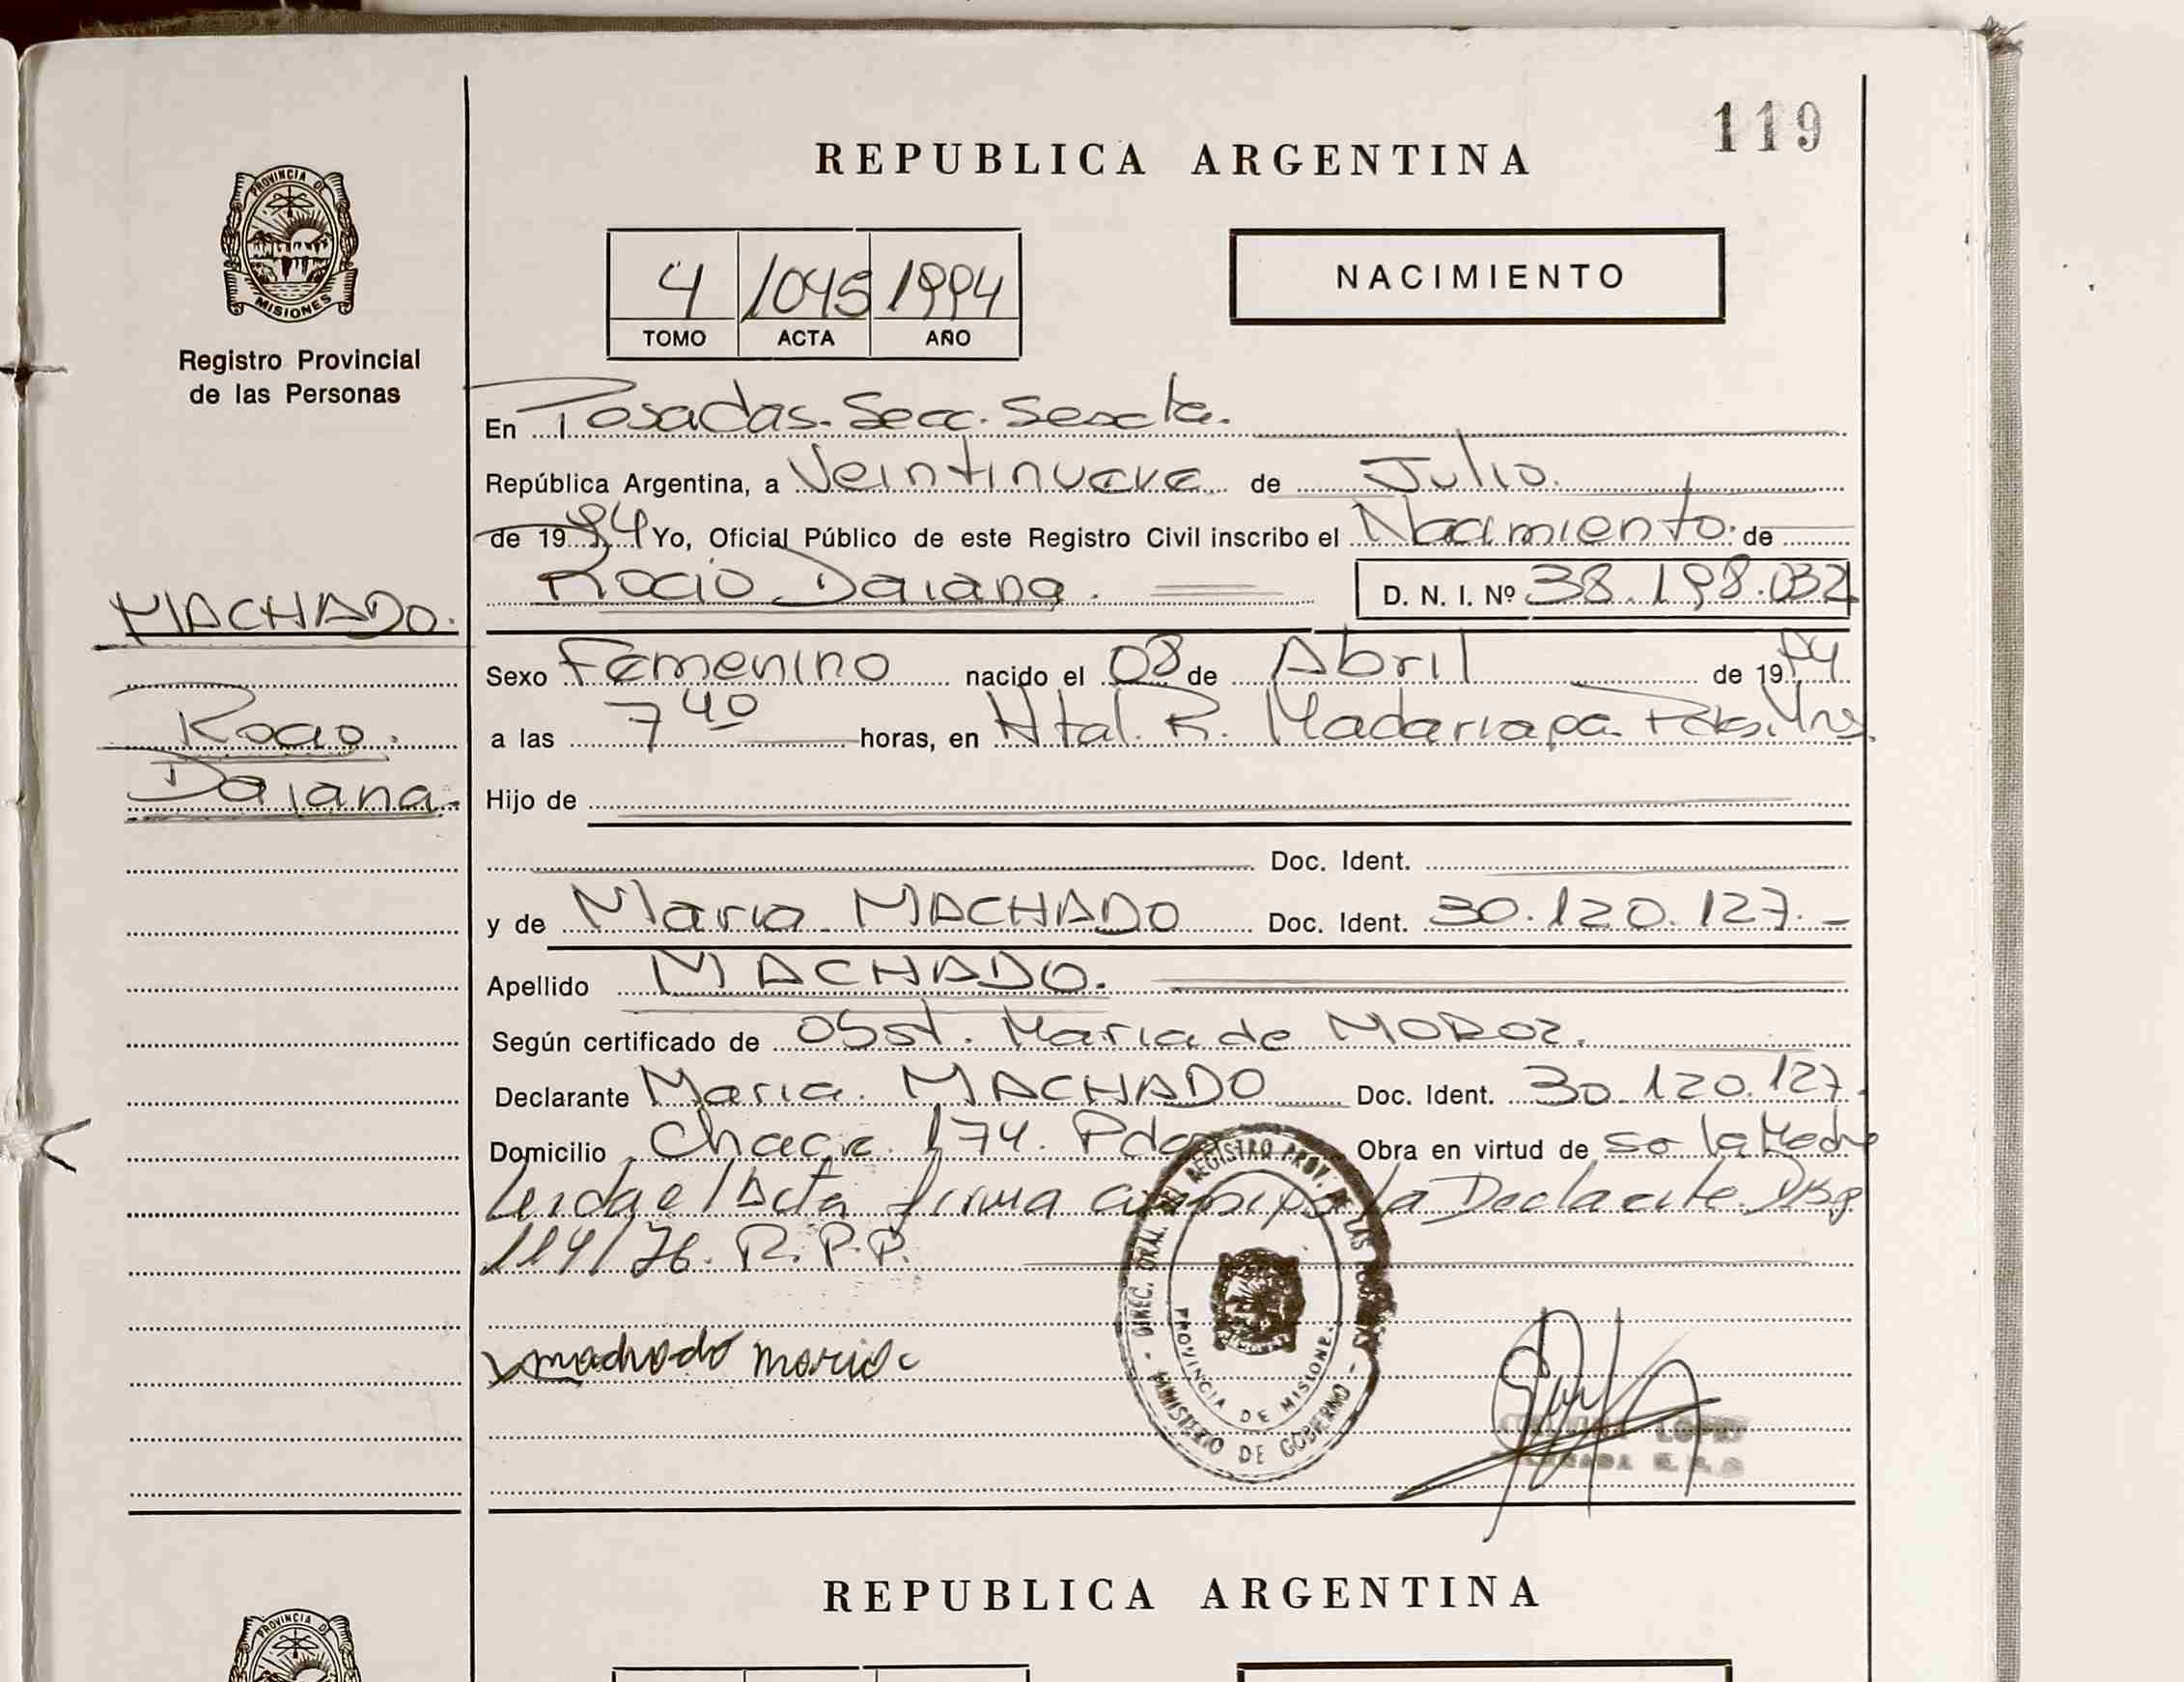 119
REPUBLICA ARGENTINA
PROVINCIA DE
MISIONES
Registro Provincial
de las Personas
4 1045 1994
TOMO ACTA AÑO
NACIMIENTO
En Posadas. Secc. Sexta.
República Argentina, a Veintinueve de Julio.
de 1994 Yo, Oficial Público de este Registro Civil inscribo el Nacimiento. de
Rocio Daiana. D. N. I. Nº 38.198.032
MACHADO.
Rocio.
Daiana.
Sexo Femenino nacido el 08 de Abril de 1994
a las 7 40 horas, en Htal. R. Madariaga. Pdas. Mns.
Hijo de
Doc. Ident.
y de Maria MACHADO Doc. Ident. 30.120.127.
Apellido MACHADO.
Según certificado de Obst. Maria de MOROZ.
Declarante Maria. MACHADO Doc. Ident. 30.120.127.
Domicilio Chacra 174. Pdas Obra en virtud de ser la Madre
Leida el Acta firma conmigo la Declarante. Disp
114/76. R.P.P.
machado maria
DIREC. GRAL. DEL REGISTRO PROV. DE LAS PERSONAS
PROVINCIA DE MISIONES
- MINISTERIO DE GOBIERNO -
LOPEZ
REPUBLICA ARGENTINA
PROVINCIA DE